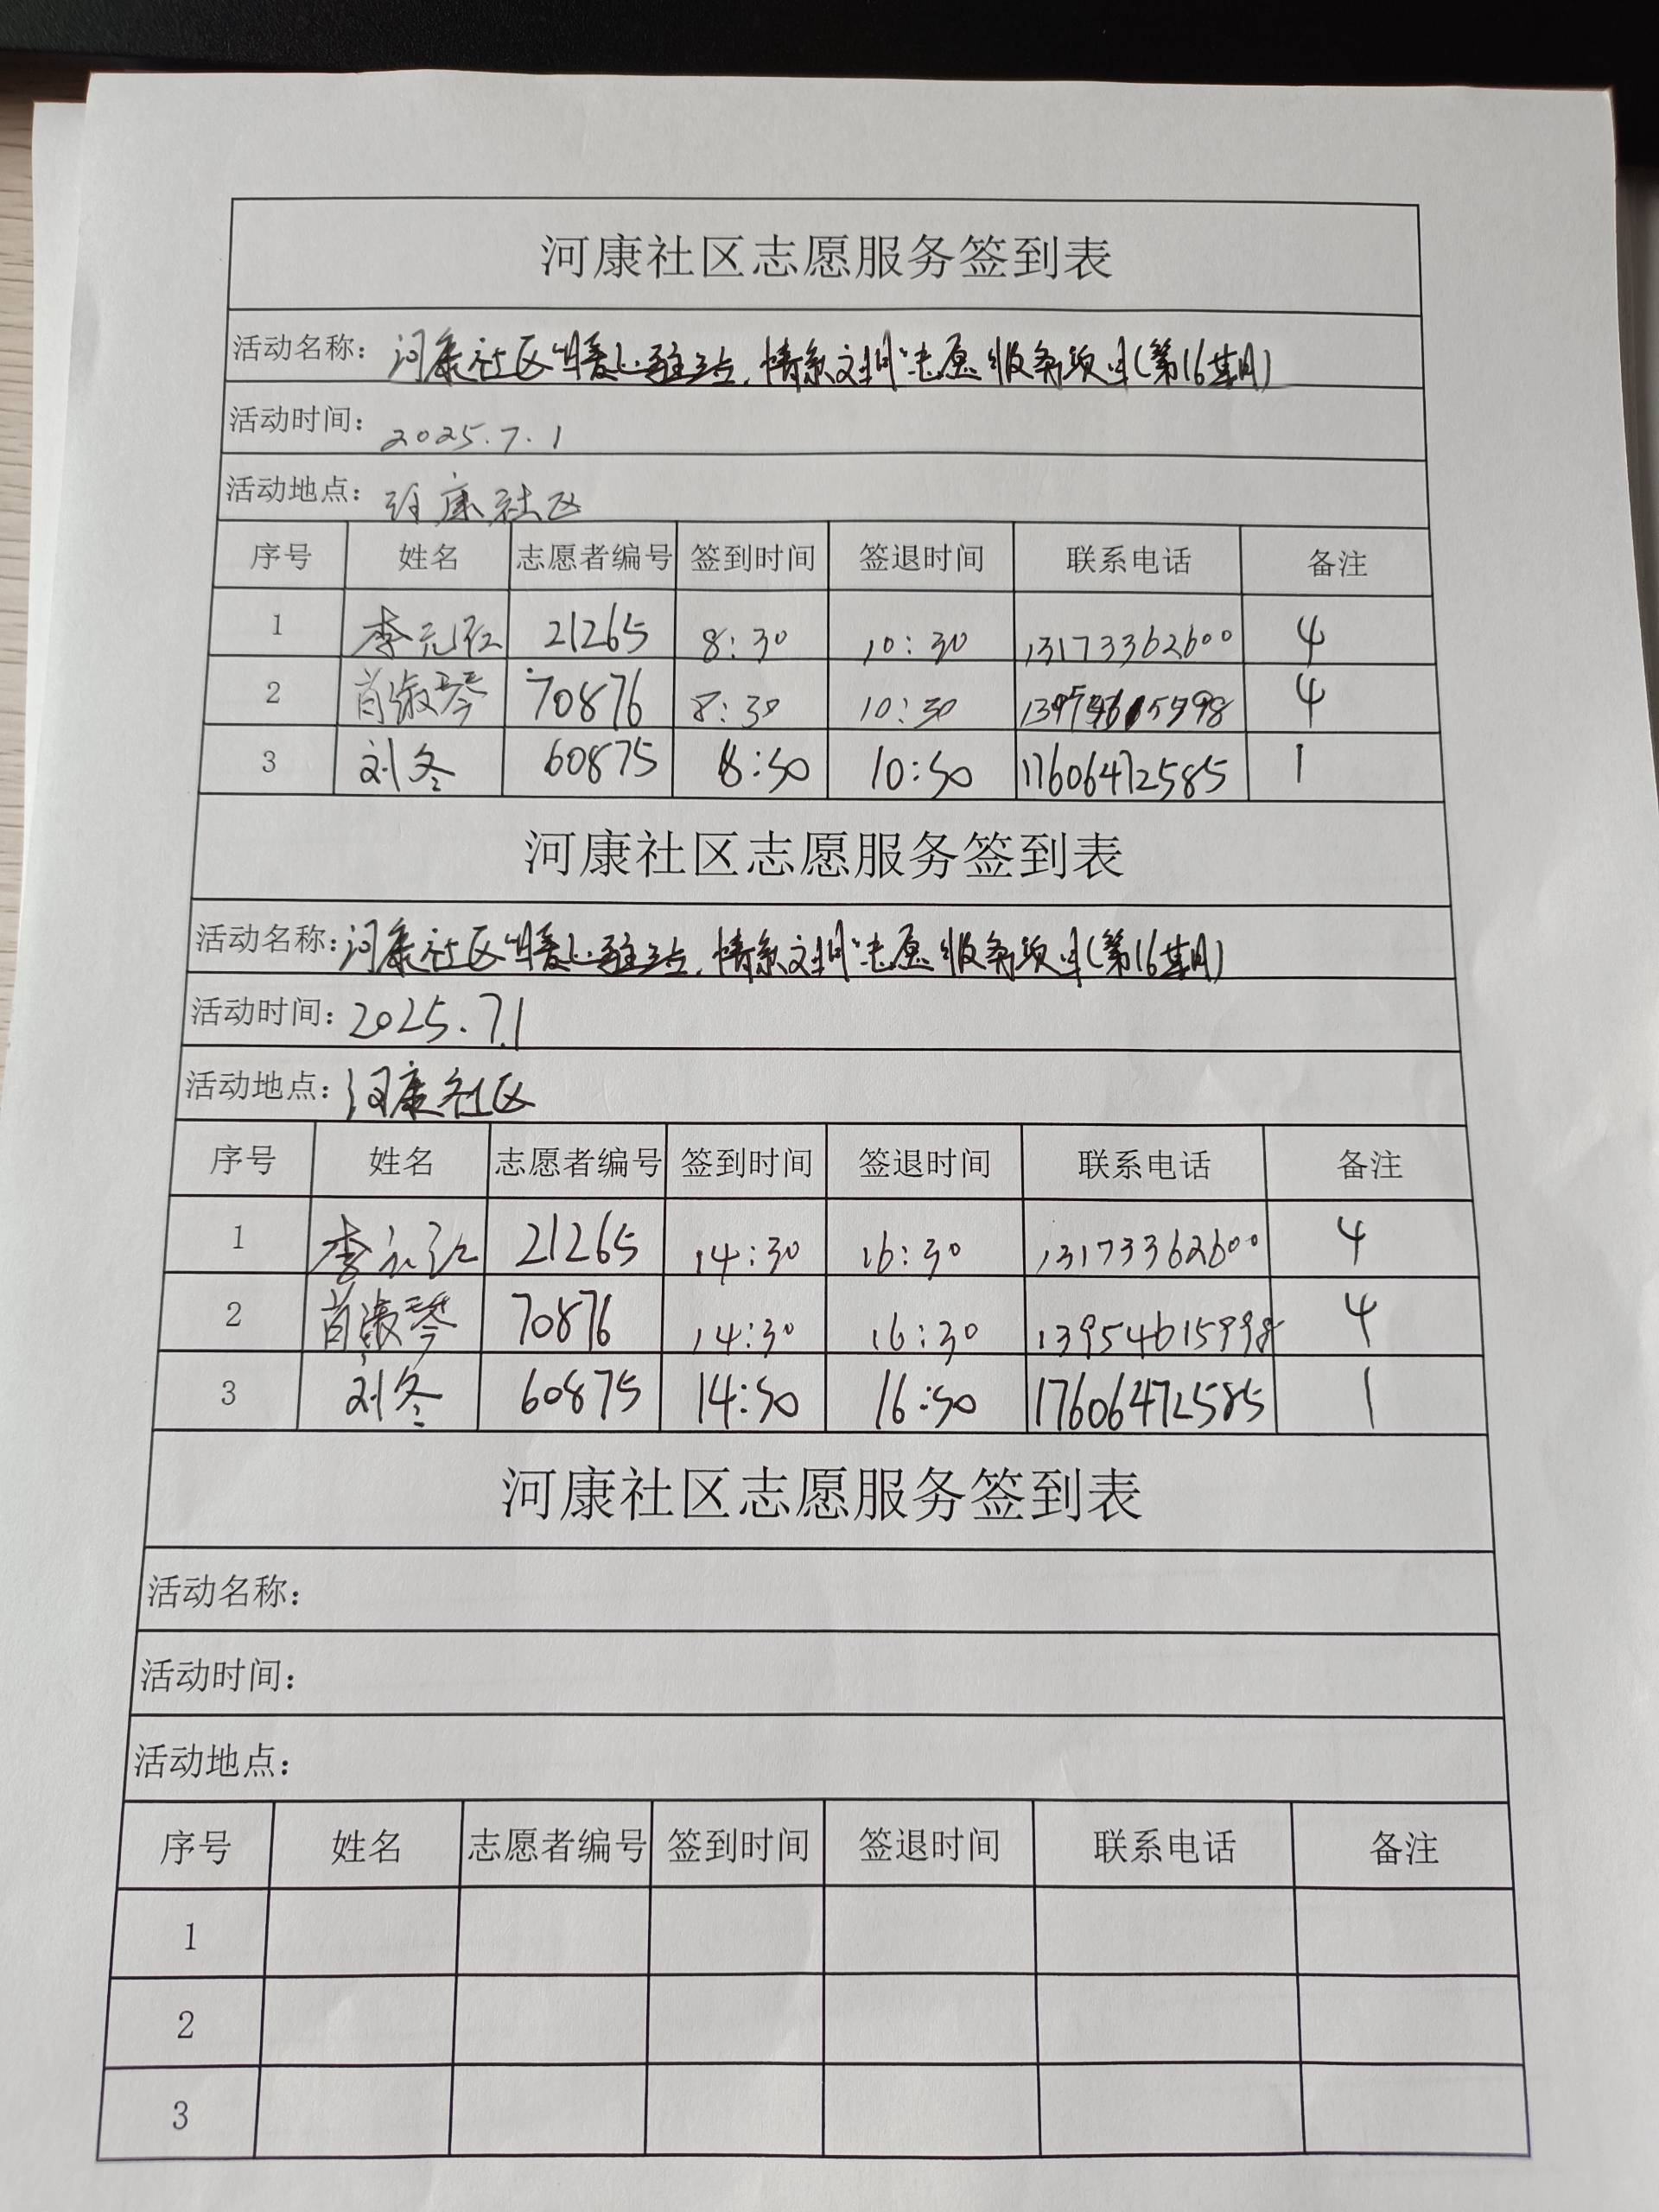 河康社区志愿服务签到表
活动名称: 河康社区"暖心驿站,情系文明"志愿服务项目(第16期)
活动时间: 2025.7.1
活动地点: 河康社区
序号 姓名 志愿者编号 签到时间 签退时间 联系电话 备注
1 李元红 21265 8:30 10:30 13173362600 4
2 肖淑琴 70876 8:30 10:30 4
3 刘冬 60875 8:30 10:30 17606472585 1
河康社区志愿服务签到表
活动名称: 河康社区"暖心驿站,情系文明"志愿服务项目(第16期)
活动时间: 2025.7.1
活动地点: 河康社区
序号 姓名 志愿者编号 签到时间 签退时间 联系电话 备注
1 李元红 21265 14:30 16:30 13173362600 4
2 肖淑琴 70876 14:30 16:30 13954615998 4
3 刘冬 60875 14:30 16:30 17606472585 1
河康社区志愿服务签到表
活动名称:
活动时间:
活动地点:
序号 姓名 志愿者编号 签到时间 签退时间 联系电话 备注
1
2
3